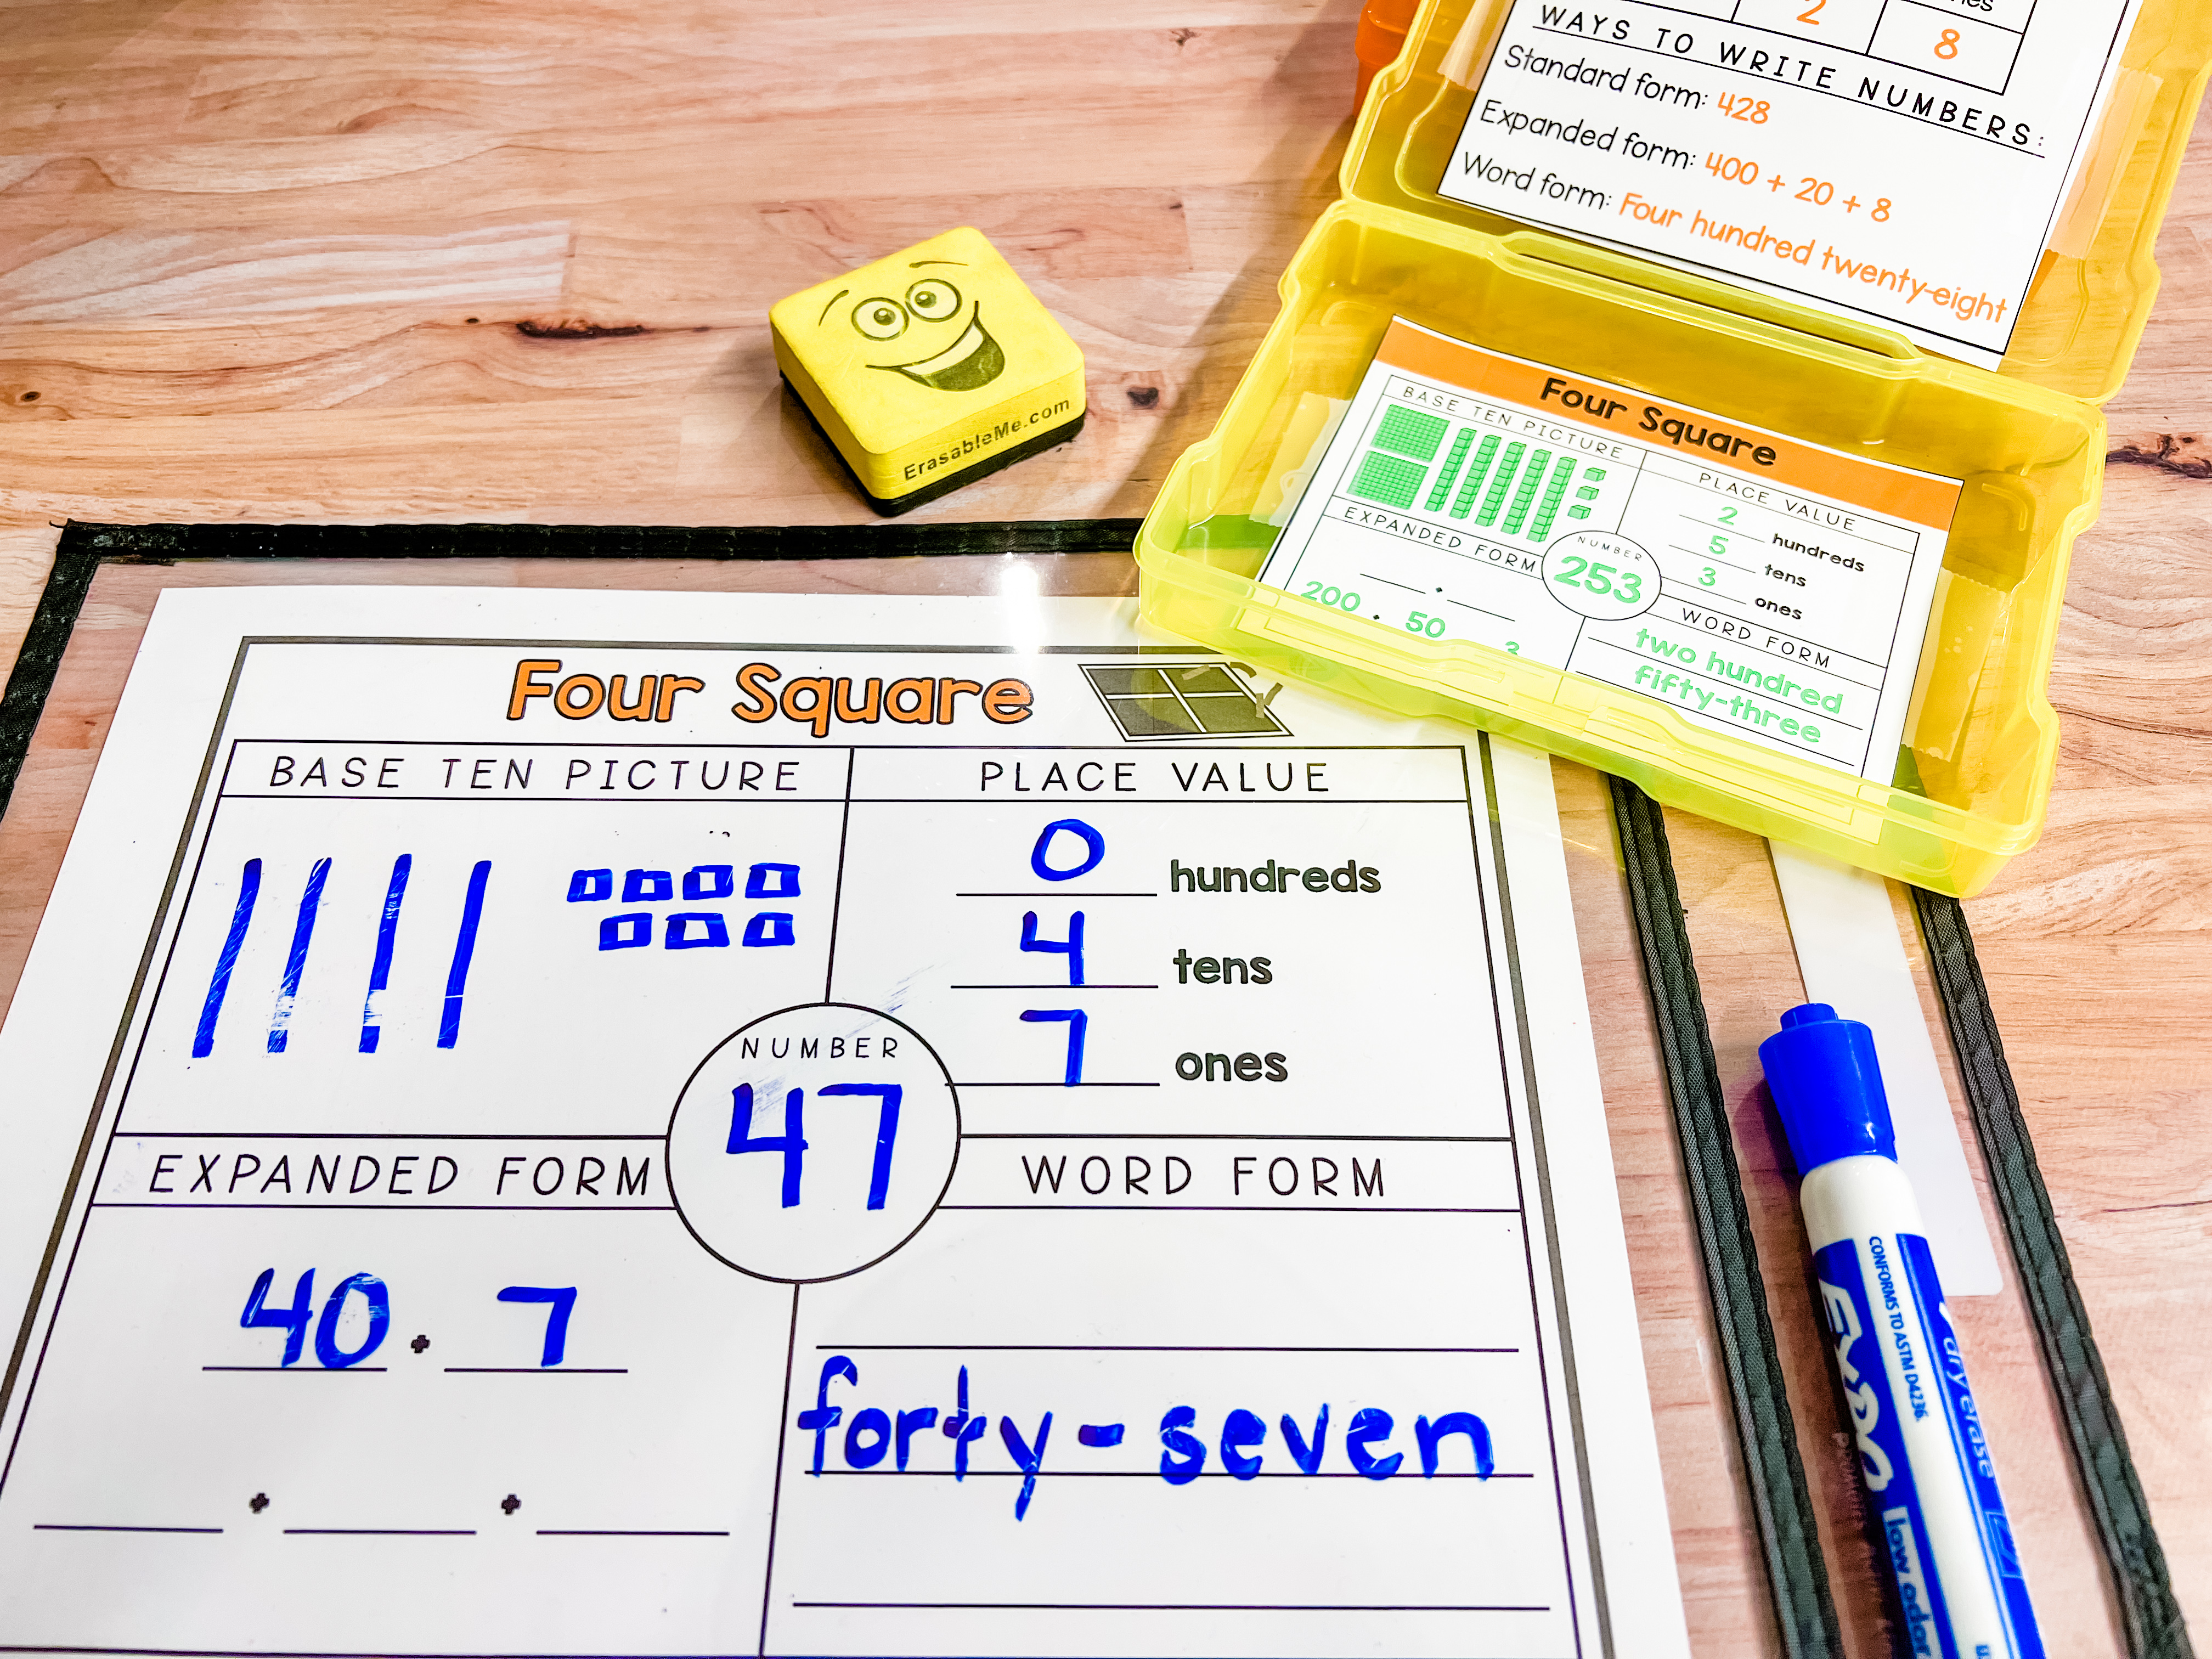 2
nes
8
WAYS TO WRITE NUMBERS:
Standard form: 428
Expanded form: 400 + 20 + 8
Word form: Four hundred twenty-eight
ErasableMe.com
Four Square
BASE TEN PICTURE
PLACE VALUE
2 hundreds
5 tens
3 ones
EXPANDED FORM
NUMBER
253
+
200 + 50 3
WORD FORM
two hundred
fifty-three
Four Square
BASE TEN PICTURE
PLACE VALUE
0 hundreds
4 tens
7 ones
NUMBER
47
EXPANDED FORM
40 + 7
+ +
WORD FORM
forty-seven
CONFORMS TO ASTM D4236.
EXPO
dry erase
low odor